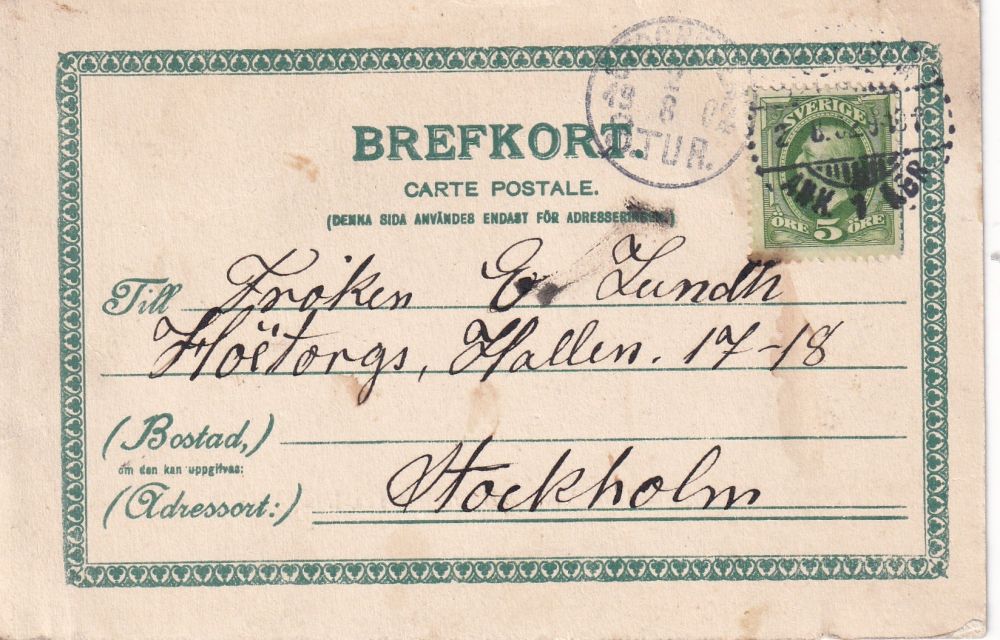 BREFKORT.
CARTE POSTALE.
(DENNA SIDA ANVÄNDES ENDAST FÖR ADRESSERINGEN.)
SVERIGE
ÖRE 5 ÖRE
TUR.
Till Fröken E. Lundh
Höetorgs, Hallen. 17-18
(Bostad,)
om den kan uppgifvas:
(Adressort:) Stockholm